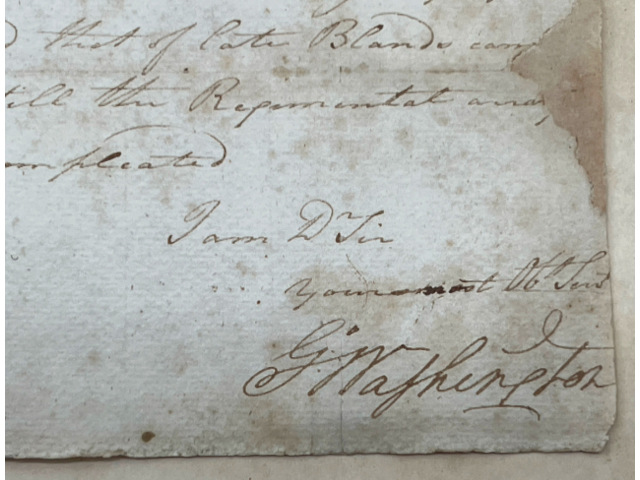 that of late Blands
till the Regimental
compleated
I am D Sir
Your most Obt Serv
G Washington